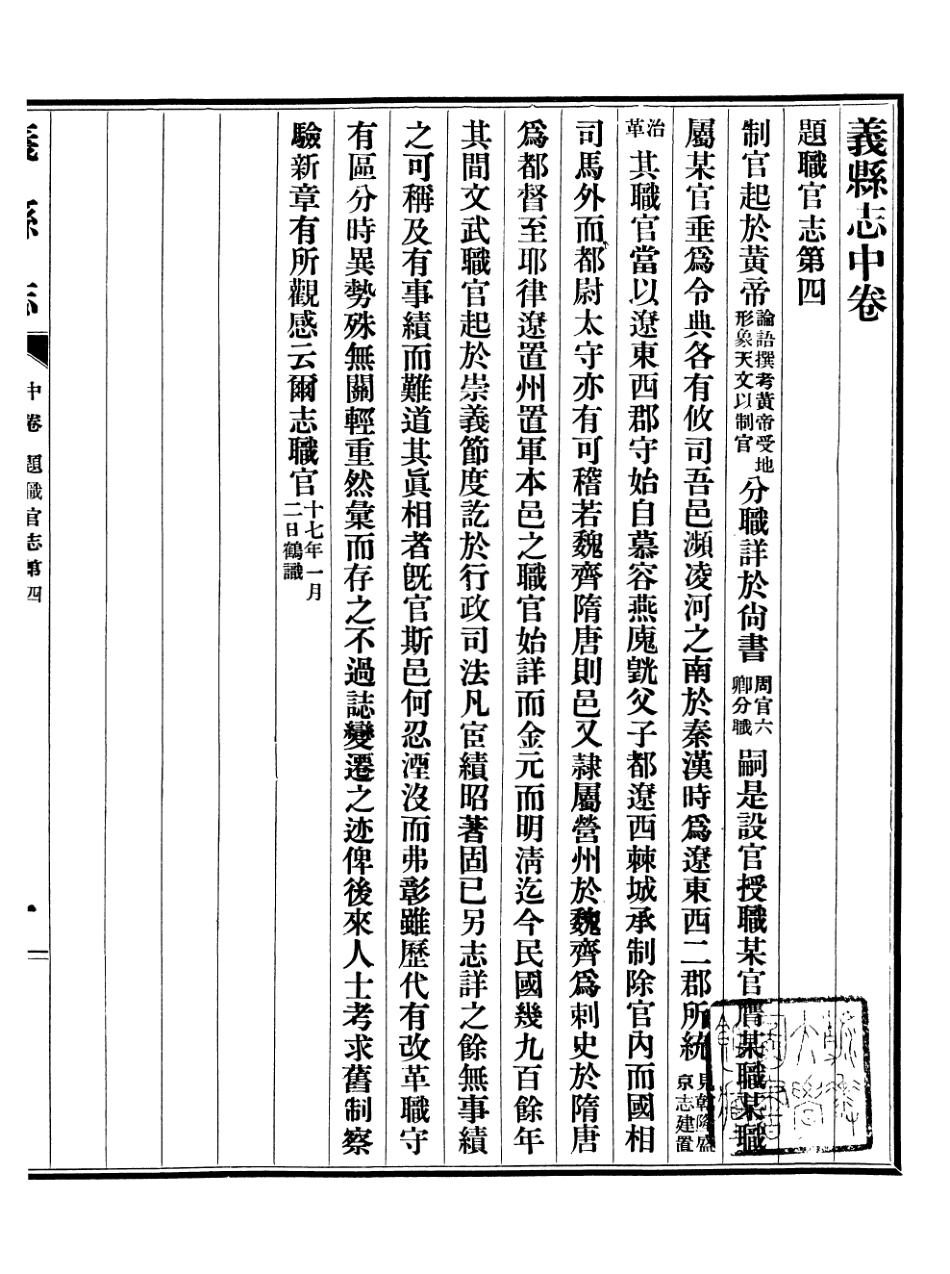 義縣志中卷
題職官志第四
制官起於黃帝論語撰考黃帝受地形象天文以制官分職詳於尙書周官六卿分職嗣是設官授職某官膺某職某職
屬某官垂爲令典各有攸司吾邑瀕凌河之南於秦漢時爲遼東西二郡所統見乾隆盛京志建置
治革其職官當以遼東西郡守始自慕容燕廆皝父子都遼西棘城承制除官內而國相
司馬外而都尉太守亦有可稽若魏齊隋唐則邑又隷屬營州於魏齊爲刺史於隋唐
爲都督至耶律遼置州置軍本邑之職官始詳而金元而明淸迄今民國幾九百餘年
其間文武職官起於崇義節度訖於行政司法凡宦績昭著固已另志詳之餘無事績
之可稱及有事績而難道其眞相者旣官斯邑何忍湮沒而弗彰雖歷代有改革職守
有區分時異勢殊無關輕重然彙而存之不過誌變遷之迹俾後來人士考求舊制察
驗新章有所觀感云爾志職官十七年一月二日鶴識
義縣志 中卷 題職官志第四 一